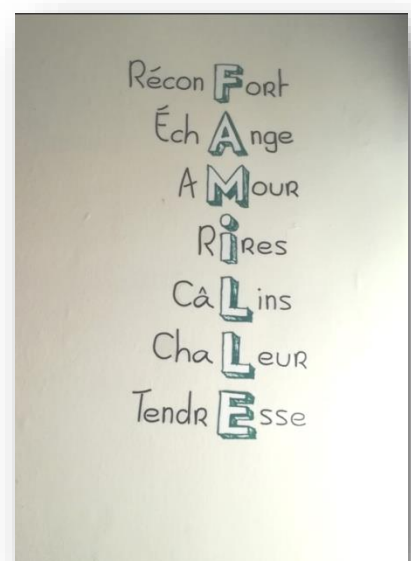 RéconFort
ÉchAnge
AMour
RiRes
CâLins
ChaLeuR
TendREsse